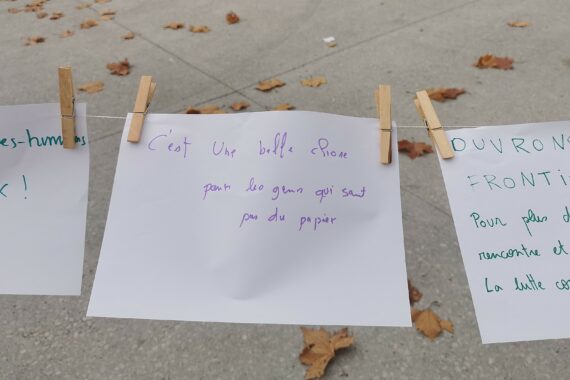 es-humains
x !
C'est Une belle chose
pour les gens qui sont
pas du papier
OUVRONS
FRONTI
Pour plus d
rencontre et
La lutte co